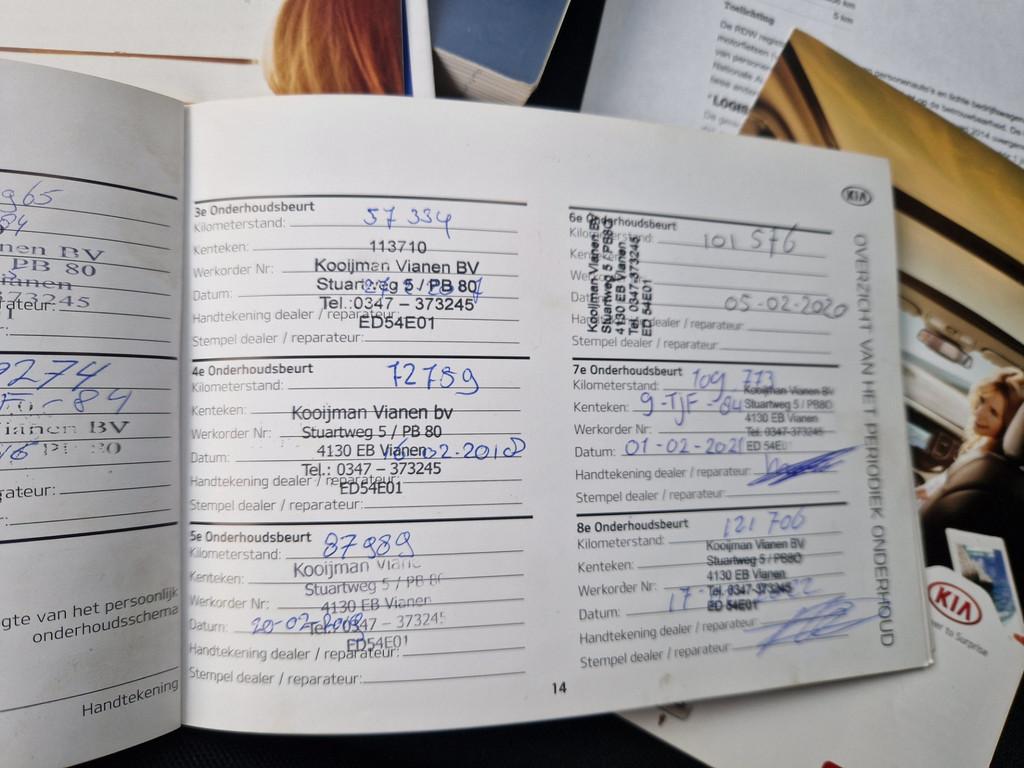 Toelichting
5 km
De RDW
LOGIN
965
84
nen BV
PB 80
73245
rateur:
9274
84
ianen BV
rateur:
gte van het persoonlijk
onderhoudsschema
Handtekening
3e Onderhoudsbeurt
Kilometerstand: 57 334
Kenteken: 113710
Werkorder Nr: Kooijman Vianen BV
Stuartweg 5 / PB 80
Datum:
Tel.:0347 – 373245
Handtekening dealer / reparateur:
ED54E01
Stempel dealer / reparateur:
4e Onderhoudsbeurt
Kilometerstand: 72789
Kenteken: Kooijman Vianen bv
Werkorder Nr: Stuartweg 5 / PB 80
4130 EB Vianen
Datum: 02-2018
Tel.: 0347 – 373245
Handtekening dealer / reparateur:
ED54E01
Stempel dealer / reparateur:
5e Onderhoudsbeurt
Kilometerstand: 87989
Kooijman Vianen
Kenteken: Stuartweg 5 / PB 80
Werkorder Nr: 4130 EB Vianen
Datum: 20-02-2019 Tel.: 0347 – 373245
Handtekening dealer / reparateur:
ED54E01
Stempel dealer / reparateur:
14
KIA
6e Onderhoudsbeurt
Kilometerstand: 101 576
Kenteken:
Werkorder Nr:
Datum: 05-02-2020
Handtekening dealer / reparateur:
Stempel dealer / reparateur:
Kooijman Vianen BV
Stuartweg 5 / PB80
4130 EB Vianen
Tel. 0347-373245
ED 54E01
7e Onderhoudsbeurt
Kilometerstand: 109 773
Kooijman Vianen BV
Kenteken: 9-TJF-84 Stuartweg 5 / PB80
4130 EB Vianen
Werkorder Nr: Tel. 0347-373245
Datum: 01-02-2021 ED 54E01
Handtekening dealer / reparateur:
Stempel dealer / reparateur:
8e Onderhoudsbeurt
Kilometerstand: 121 706
Kooijman Vianen BV
Kenteken: Stuartweg 5 / PB80
4130 EB Vianen
Werkorder Nr: Tel. 0347-373245
Datum: 17- 22 ED 54E01
Handtekening dealer / reparateur:
Stempel dealer / reparateur:
OVERZICHT VAN HET PERIODIEK ONDERHOUD
KIA
er to Surprise